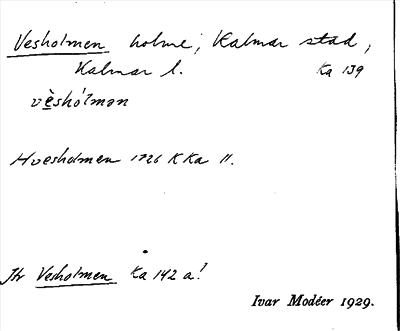 Vesholmen holme; Kalmar stad,
Kalmar l. Ka 139
vèshólmən
Hvesholmen 1726 K Ka 11.
Jfr Vesholmen Ka 142 a!
Ivar Modéer 1929.